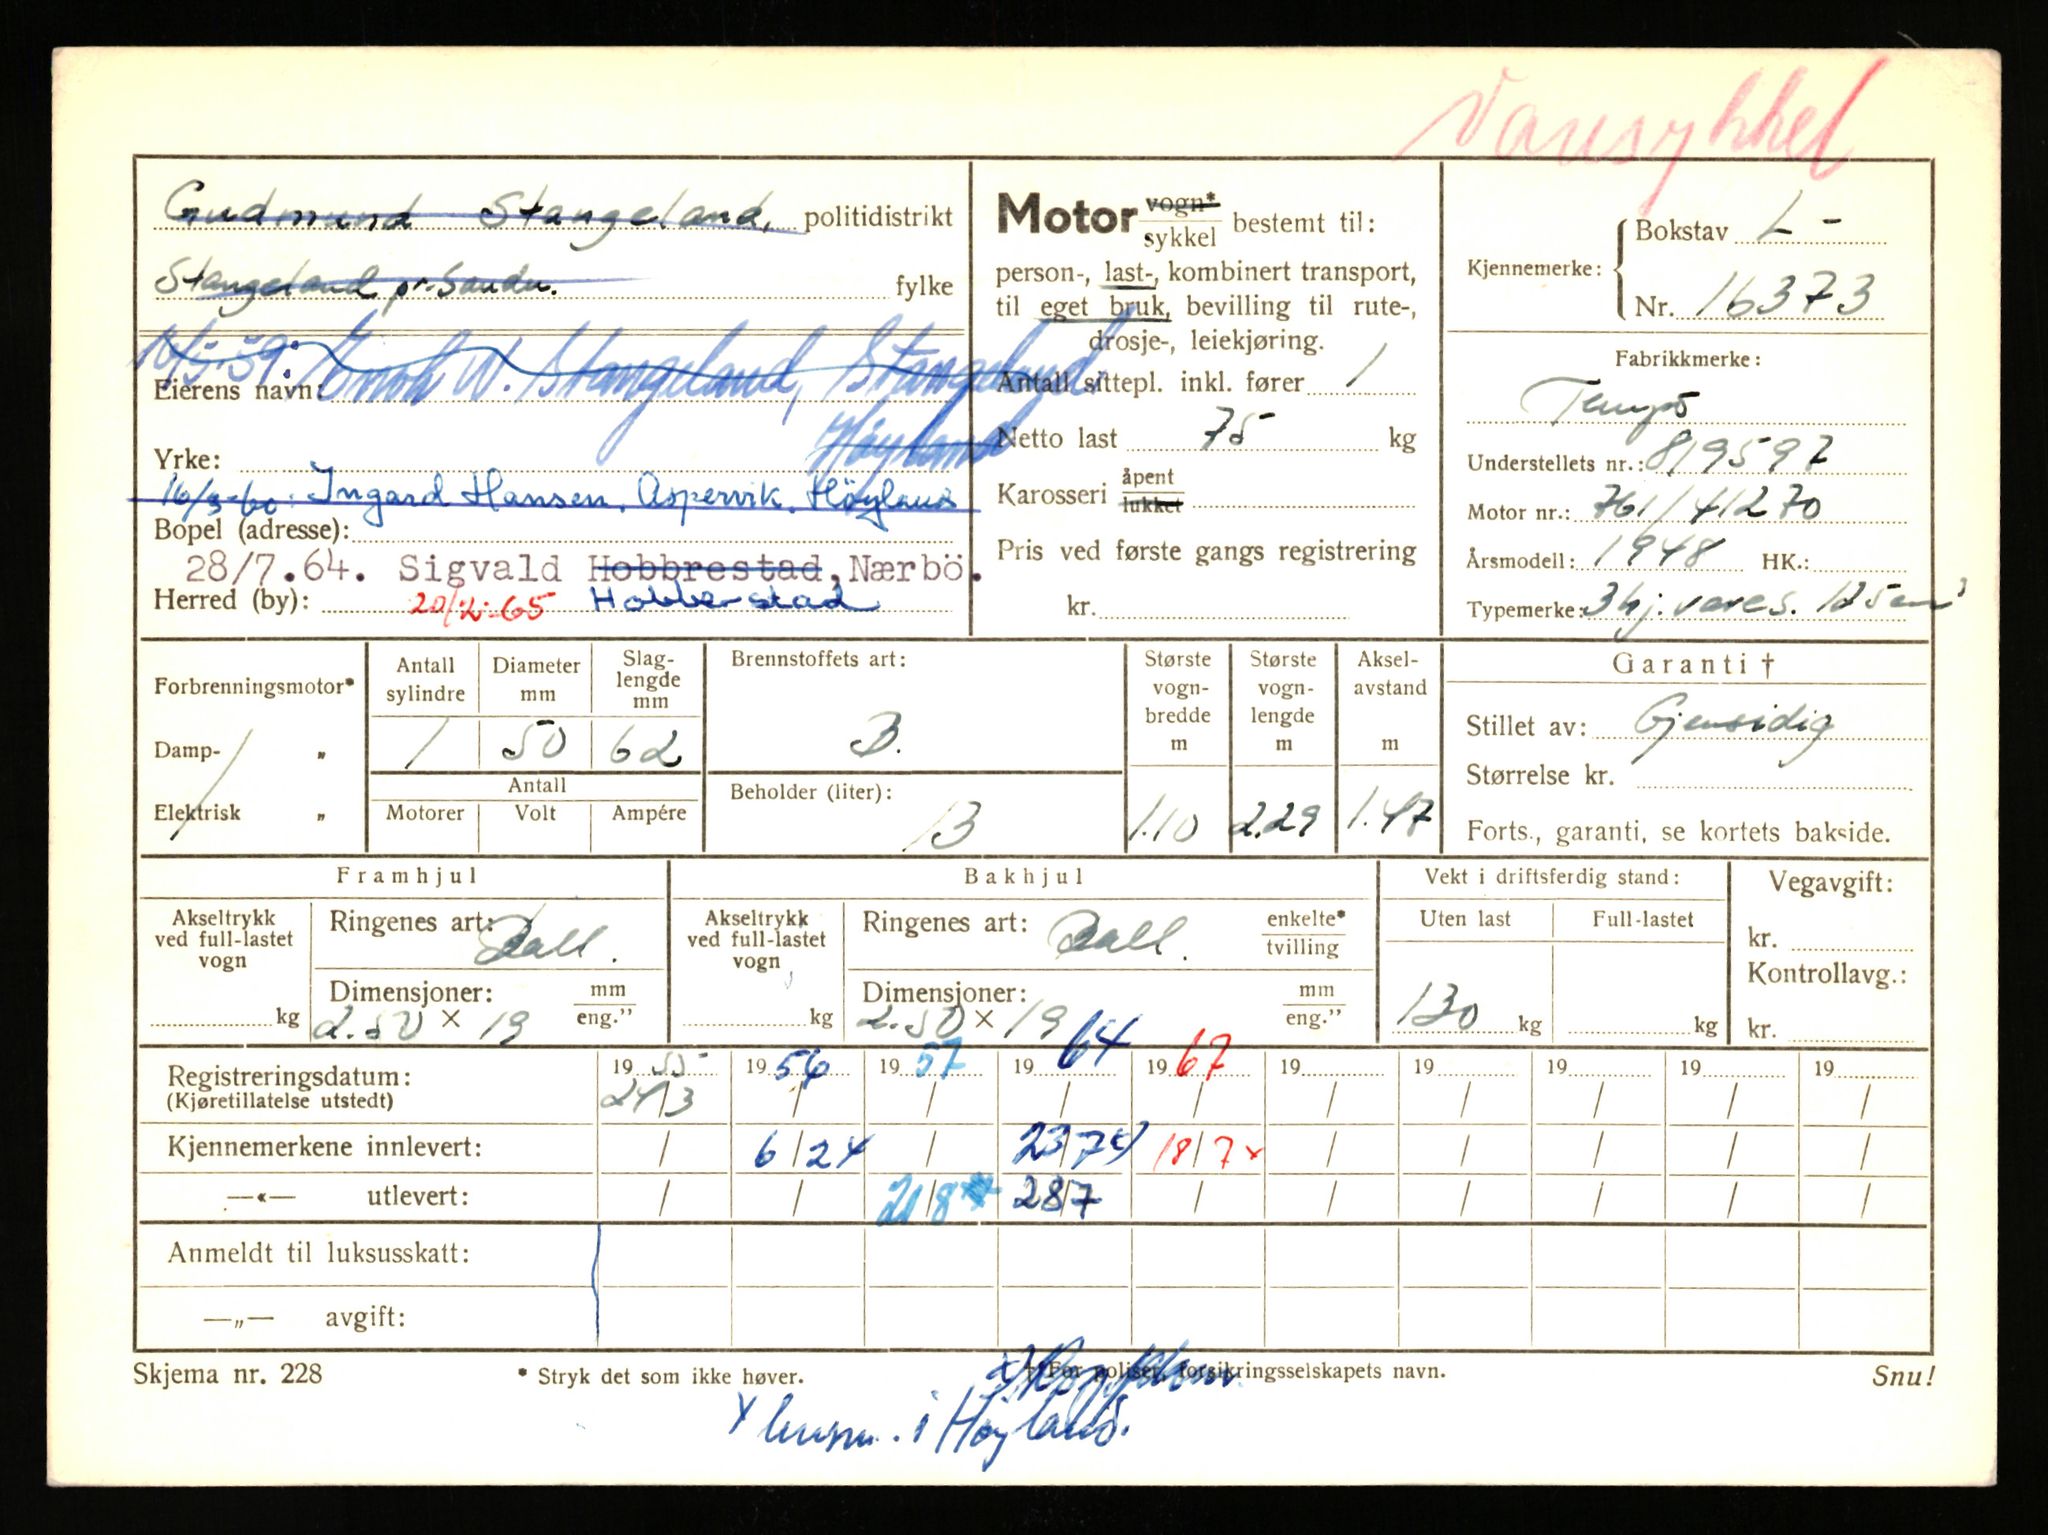 Varesykkel
Gudmund Stangeland, politidistrikt
Stangeland pr. Sandn. fylke
10/5-59. W. Stangeland, Stangeland
Eierens navn:
Høyland
Yrke:
16/3-60. Ingard Hansen, Aspervik, Høyland
Bopel (adresse):
28/7.64. Sigvald Hobbrestad, Nærbö.
Herred (by): 20/2-65 Hobberstad
Motor vogn* sykkel bestemt til:
person-, last-, kombinert transport,
til eget bruk, bevilling til rute-,
drosje-, leiekjøring.
Antall sittepl. inkl. fører 1
Netto last 75 kg
Karosseri åpent lukket
Pris ved første gangs registrering
kr.
Kjennemerke: Bokstav L-
Nr. 16373
Fabrikkmerke:
Tempo
Understellets nr.: 819597
Motor nr.: 761/41270
Årsmodell: 1948 HK.:
Typemerke: 3 hj. vares. 125 cm³
Forbrenningsmotor*
Damp- „
Elektrisk „
Antall sylindre 1
Diameter mm 50
Slag-lengde mm 62
Antall
Motorer Volt Ampére
Brennstoffets art:
B.
Beholder (liter):
13
Største vogn-bredde m 1.10
Største vogn-lengde m 2.29
Aksel-avstand m 1.47
Garanti †
Stillet av: Gjensidig
Størrelse kr.
Forts., garanti, se kortets bakside.
Framhjul
Akseltrykk ved full-lastet vogn kg
Ringenes art: Ball.
Dimensjoner: mm eng."
2.50 × 19
Bakhjul
Akseltrykk ved full-lastet vogn kg
Ringenes art: Ball. enkelte* tvilling
Dimensjoner: mm eng."
2.50 × 19
Vekt i driftsferdig stand:
Uten last Full-lastet
130 kg kg
Vegavgift:
kr.
Kontrollavg.:
kr.
Registreringsdatum: 19 55 19 56 19 57 19 64 19 67 19 19 19 19 19
(Kjøretillatelse utstedt) 24/3 / / / / / / / / /
Kjennemerkene innlevert: / 6/24 / 23/7 x) 18/7 x / / / / /
—«— utlevert: / / 21/8 28/7 / / / / / /
Anmeldt til luksusskatt:
—„— avgift:
Skjema nr. 228 * Stryk det som ikke høver. † For poliser, forsikringsselskapets navn. Snu!
x i Høyland.